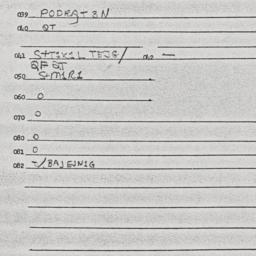 039 PODRAT 8N
040 QT
041 S+T1K1L TEJ8/ 042 —
QF QT
050 S+M1R1
060 0
070 0
080 0
081 0
082 -/BAJEJN1G